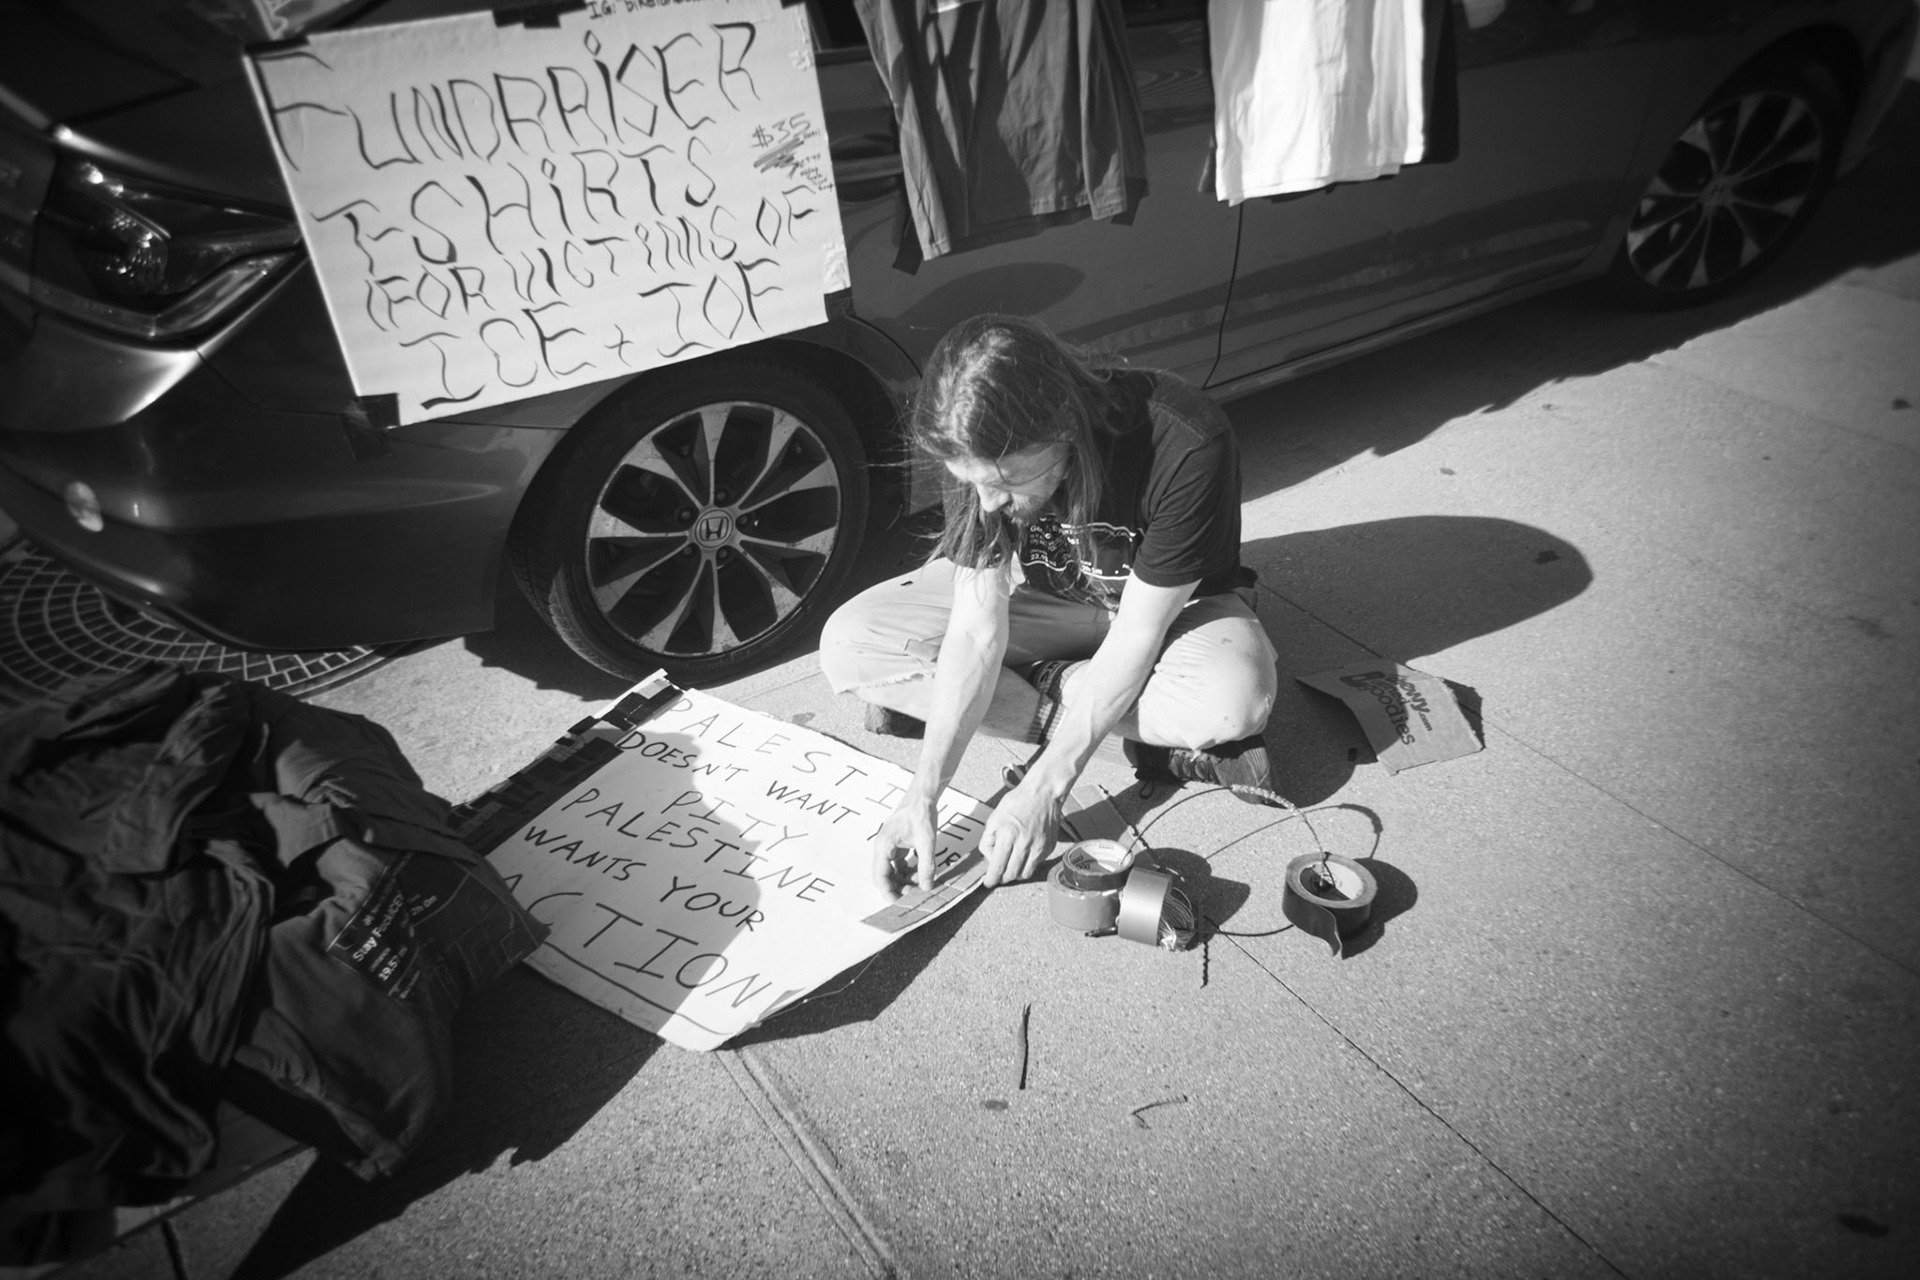 IG:
FUNDRAISER
$35
T-SHIRTS
(FOR VICTIMS OF
ICE + IOF
PALESTINE
DOESN'T WANT YOUR
PITY
PALESTINE
WANTS YOUR
ACTION